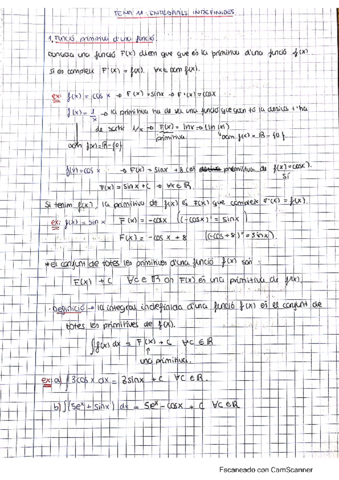 TEMA 11. INTEGRALS INDEFINIDES
1. Funció primitiva d'una funció.
una funció F(x) diem que es la primitiva d'una funció f(x)
si es compleix F'(x) = f(x). ∀x ∈ dom f(x).
ex: f(x) = cos x → F(x) = sinx → F'(x) = cosx
f(x) = 1/x → la primitiva ha de ser una funció que quan fa la deriva t'ha
de sortir 1/x → F(x) = lnx → (ln|x|)
primitiva
dom f(x) = ℝ - {0}
dom f(x) = ℝ - {0}
f(x) = cos x → F(x) = sinx + 8 primitiva de f(x) = cosx?
Sí
F(x) = sinx + C → ∀x ∈ ℝ.
Si tenim f(x), la primitiva de f(x) és F(x) que compleix F'(x) = f(x).
ex: f(x) = sin x F(x) = -cosx (-cosx)' = sinx
F(x) = -cosx + 8 (-cosx + 8)' = sinx
* el conjunt de totes les primitives d'una funció f(x) són
F(x) + C ∀C ∈ ℝ on F(x) és una primitiva de f(x).
· Definició → la integral indefinida d'una funció f(x) és el conjunt de
totes les primitives de f(x).
∫f(x) dx = F(x) + C ∀C ∈ ℝ
↑
una primitiva.
ex: a) ∫3cosx dx = 3sinx + C ∀C ∈ ℝ.
b) ∫(5eˣ + sinx) dx = 5eˣ - cosx + C ∀C ∈ ℝ
Escaneado con CamScanner